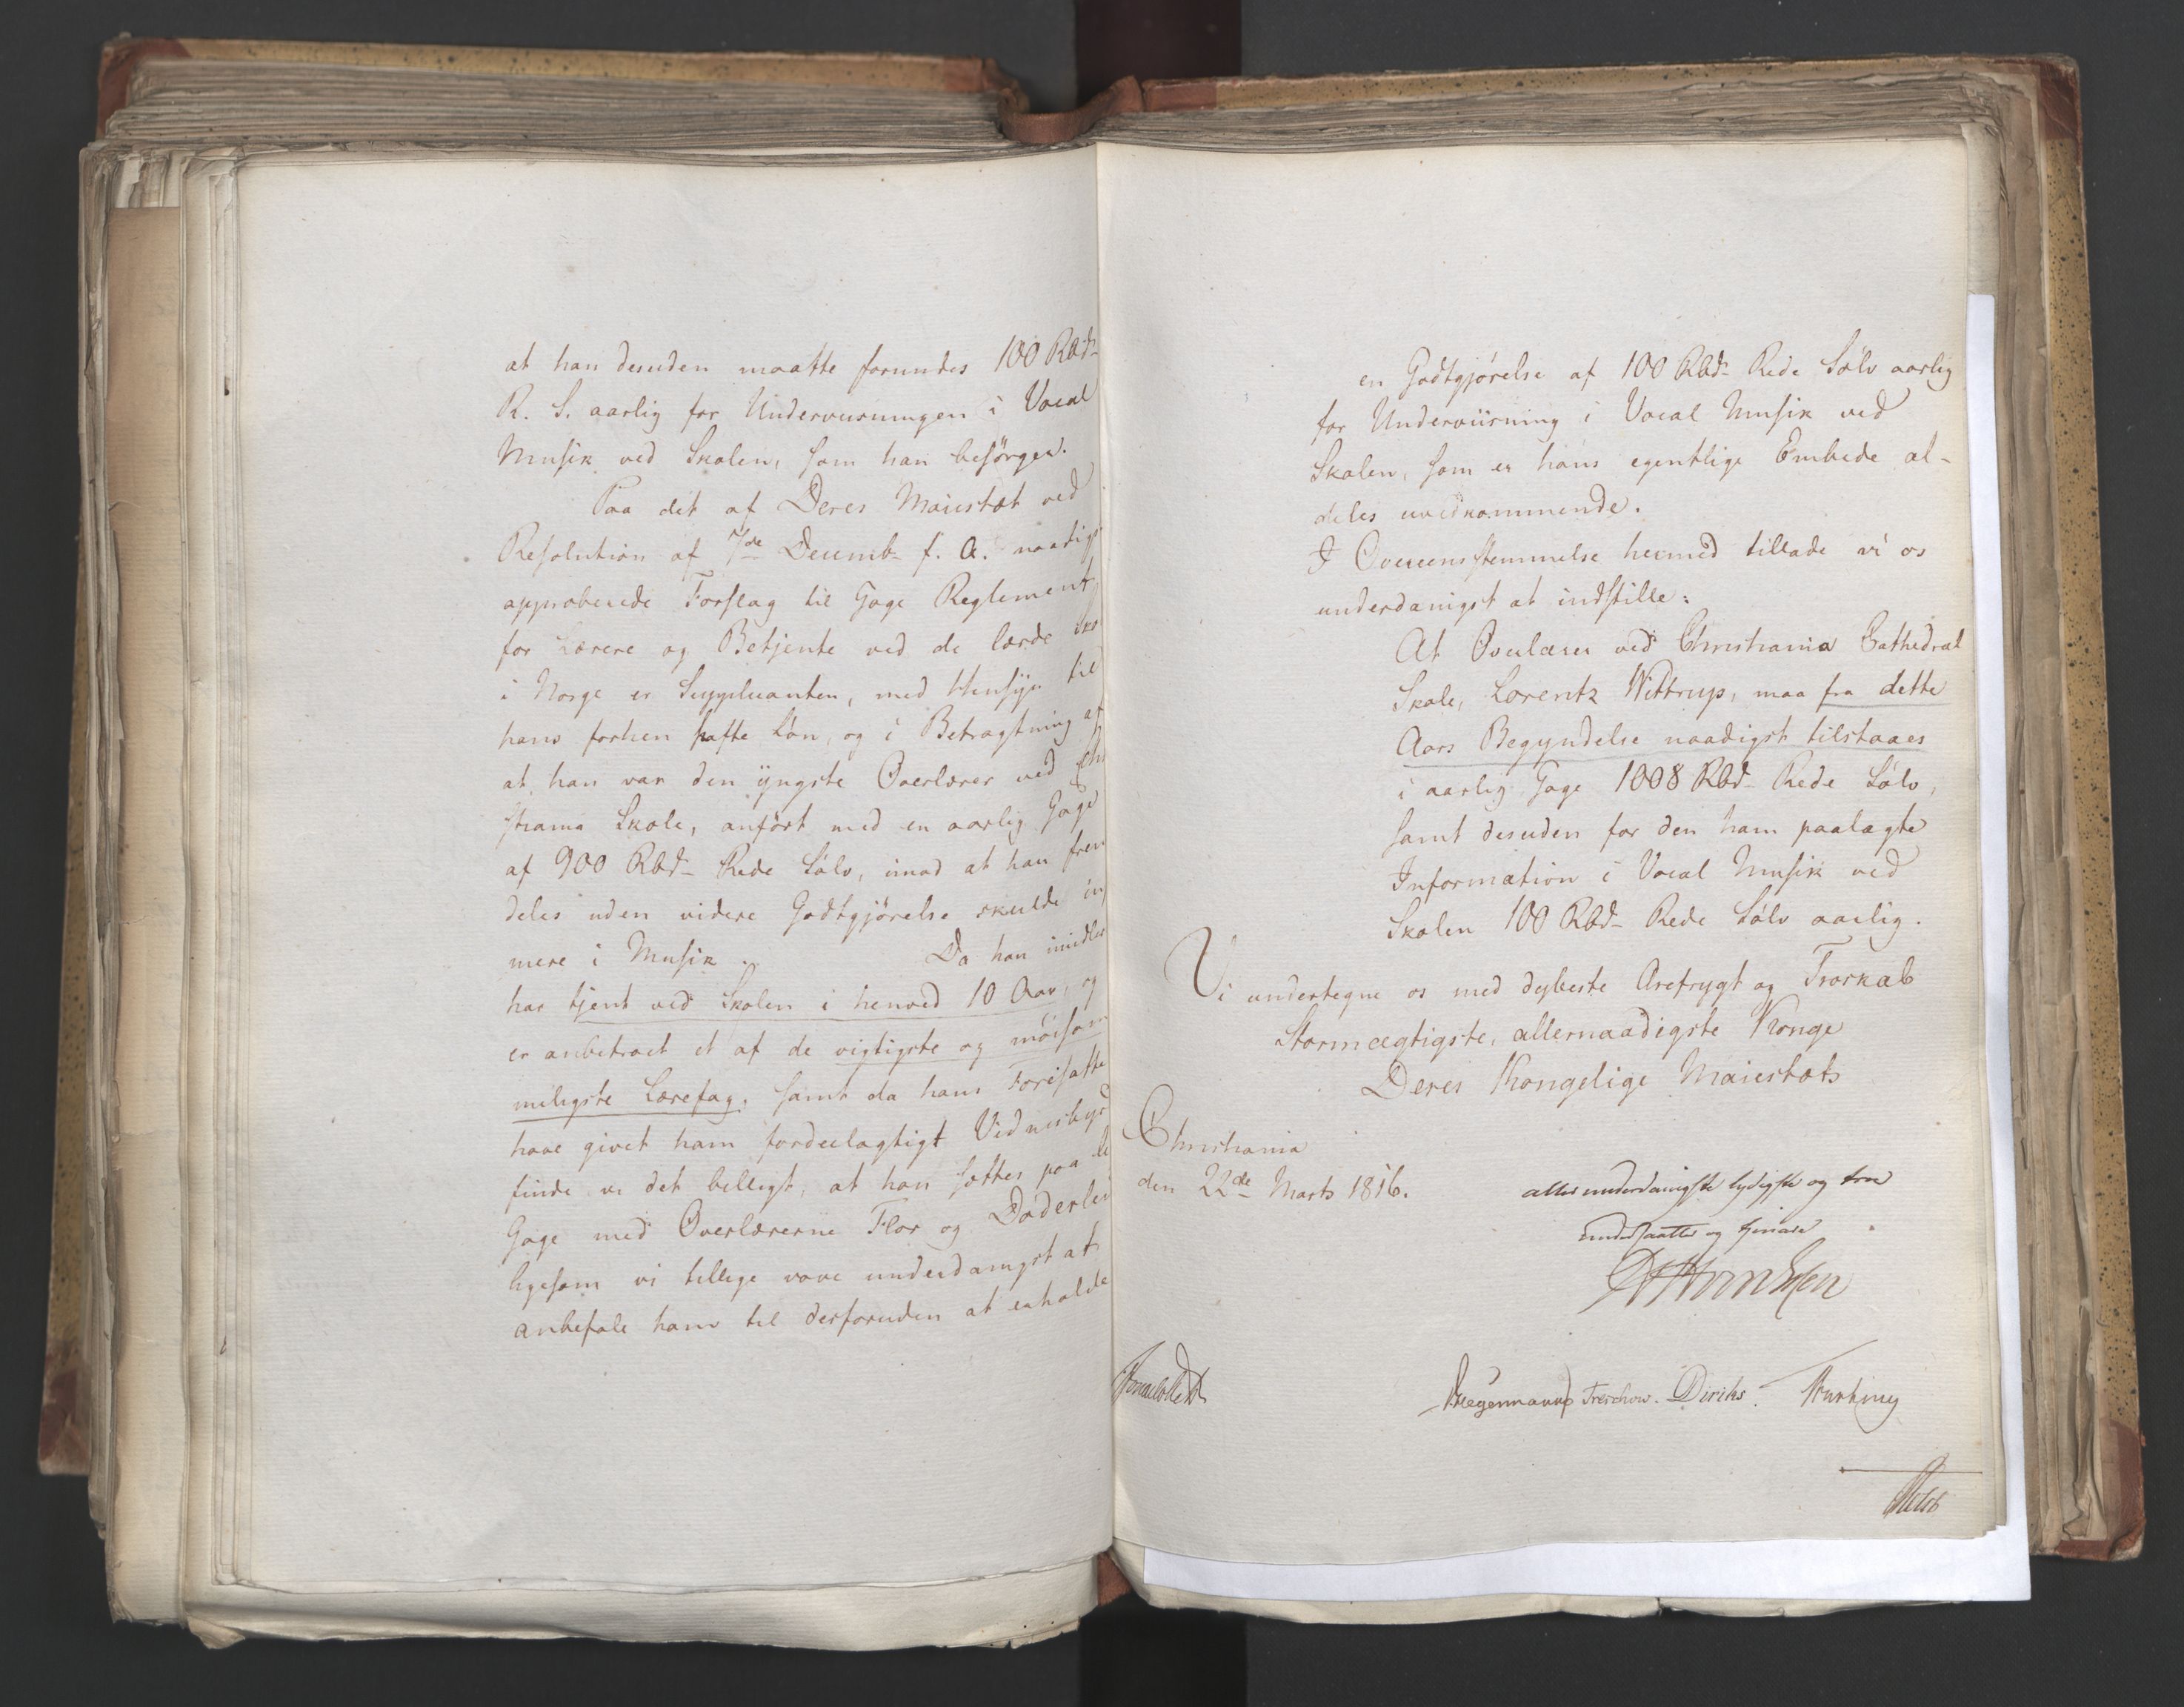 at han desuden maatte forundes 100 Rbd-
R. S. aarlig for Underviisningen i Vocal
Musik ved Skolen, som han besörger.
Paa det af Deres Maiestæt ved
Resolution af 7de Decemb- f. A. naadigst
approberede Forslag til Gage Reglement
for Lærere og Betjente ved de lærde Sko
i Norge er Supplicanten, med Hensyn til
hans forhen hafte Lön, og i Betragtning af
at han var den yngste Overlærer ved Chri
stiania Skole, anfört med en aarlig Gage
af 900 Rbd- Rede Sölv, imod at han frem
deles uden videre Godtgjörelse skulde in
mere i Musik. Da han imidler
har tjent ved Skolen i henved 10 Aar, og
er anbetroet et af de vigtigste og möisom
meligste Lærefag, samt da hans Foresatte
have givet ham fordeelagtigt Vidnesbyrd
finde vi det billigt, at han sættes paa li
Gage med Overlærerne Flor og Döderlei
ligesom vi tillige vove underdanigst at
anbefale ham til desforuden at erholde
en Godtgjörelse af 100 Rbd- Rede Sölv aarlig
for Underviisning i Vocal Musik ved
Skolen, som er hans egentlige Embede al-
deles uvedkommende.
I Overeensstemmelse hermed tillade vi os
underdanigst at indstille:
At Overlærer ved Christiania Cathedral
Skole, Lorentz Wittrup, maa fra dette
Aars Begyndelse naadigst tilstaaes
i aarlig Gage 1008 Rbd- Rede Sölv,
samt desuden for den ham paalagte
Information i Vocal Musik ved
Skolen 100 Rbd- Rede Sölv aarlig.
Vi undertegne os med dybeste Ærefrygt og Troskab
Stormægtigste, allernaadigste Konge
Deres Kongelige Maiestæts
Christiania
den 22de Marts 1816.
allerunderdanigste lydigste og troe
undersaatter og tienere
Jonas Collett
Hegermann Treschow. Diriks.